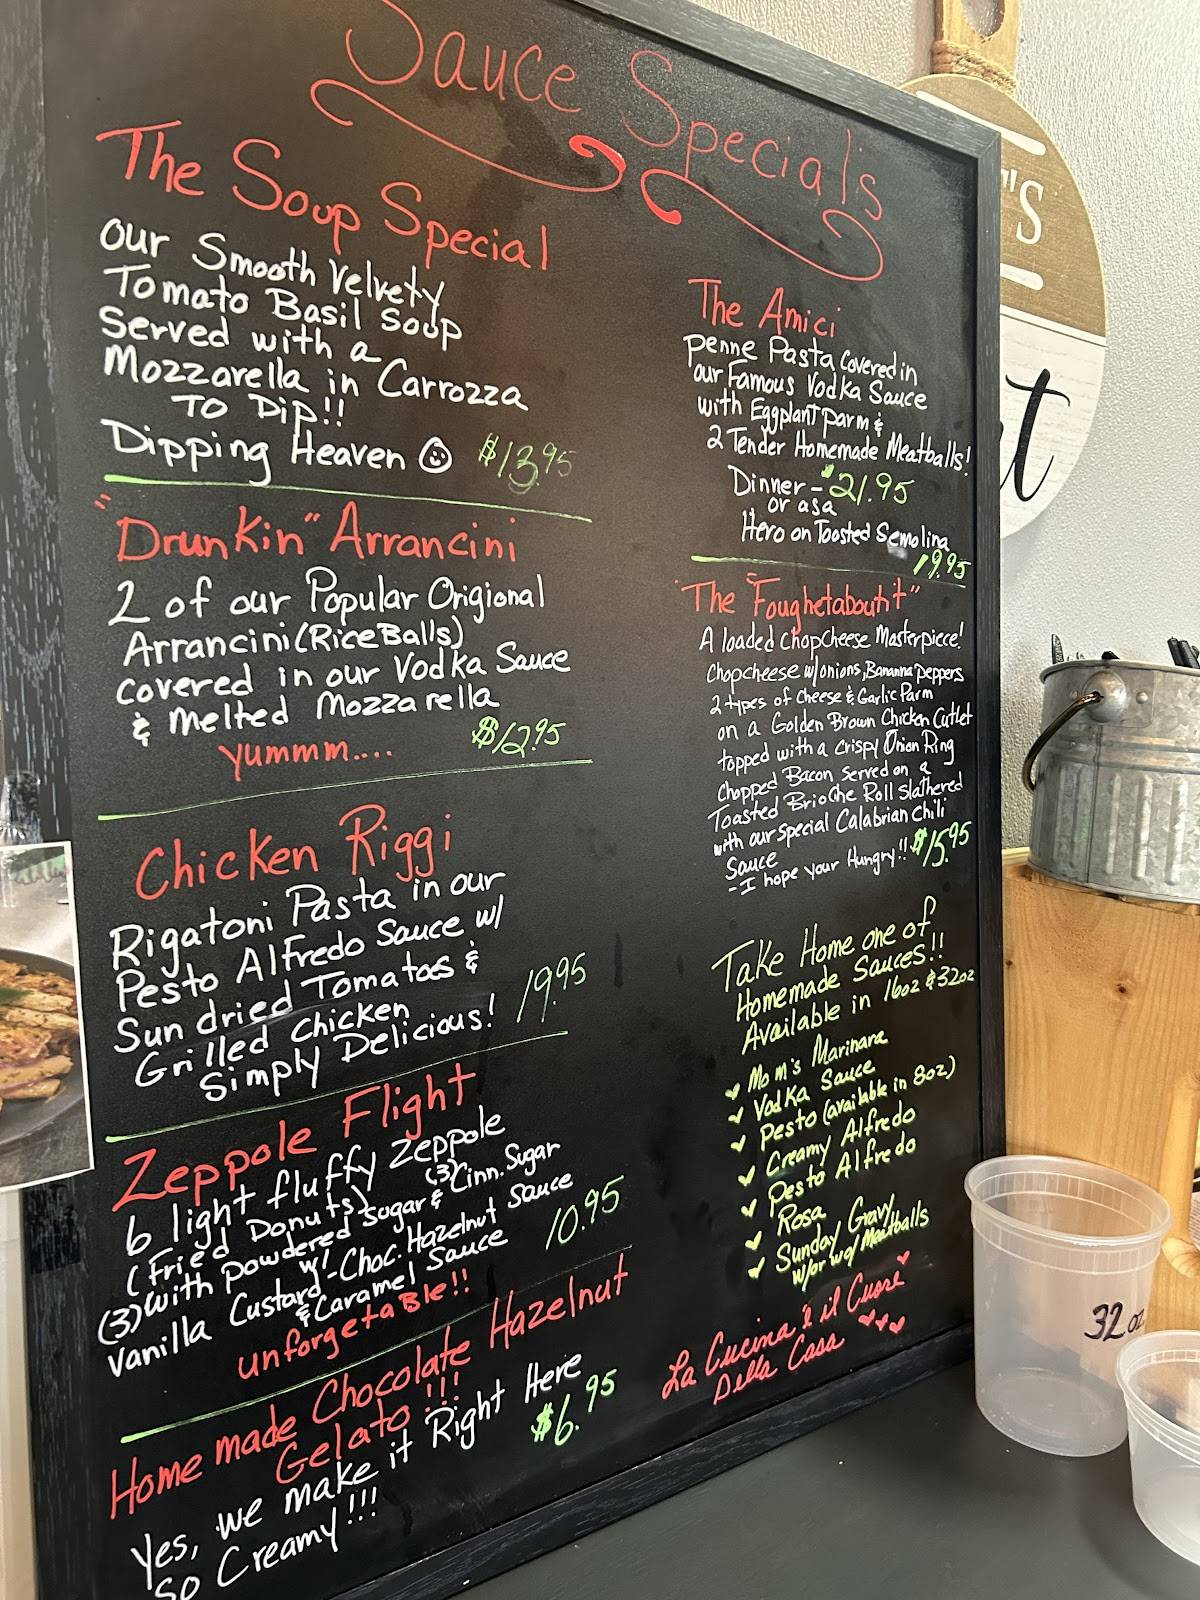 Sauce Special's
The Soup Special
Our Smooth Velvety
Tomato Basil Soup
Served with a
Mozzarella in Carrozza
To Dip!!
Dipping Heaven $13.95
"Drunkin" Arrancini
2 of our Popular Origional
Arrancini (Rice Balls)
covered in our Vodka Sauce
& Melted Mozzarella
yummm.... $12.95
Chicken Riggi
Rigatoni Pasta in our
Pesto Alfredo Sauce w/
Sun dried Tomatoes &
Grilled Chicken
Simply Delicious! 19.95
Zeppole Flight
6 light fluffy Zeppole
(Fried Donuts)
(3) with powdered sugar & (3) Cinn. Sugar
w/
Vanilla Custard - Choc. Hazelnut Sauce
& Caramel Sauce 10.95
unforgetaBle!!
Home made Chocolate Hazelnut
Gelato!!!
Yes, we make it Right Here
So Creamy!!! $6.95
The Amici
penne Pasta covered in
our Famous Vodka Sauce
with Eggplant parm &
2 Tender Homemade Meatballs!
Dinner - $21.95
or as a
Hero on Toasted Semolina
19.95
The "Foughetaboutit"
A loaded chopcheese Masterpiece!
Chopcheese w/onions, Bananna peppers
2 types of Cheese & Garlic Parm
on a Golden Brown Chicken Cutlet
topped with a crispy Onion Ring
Chopped Bacon served on a
Toasted Brioche Roll slathered
with our special Calabrian Chili
Sauce
- I hope your Hungry!! $15.95
Take Home one of
Homemade Sauces!!
Available in 16oz & 32oz
Mom's Marinara
Vodka Sauce
Pesto (available in 8oz)
Creamy Alfredo
Pesto Alfredo
Rosa
Sunday Gravy
w/or w/o Meatballs
La Cucina è il Cuore
Della Casa
'S
t
32 oz